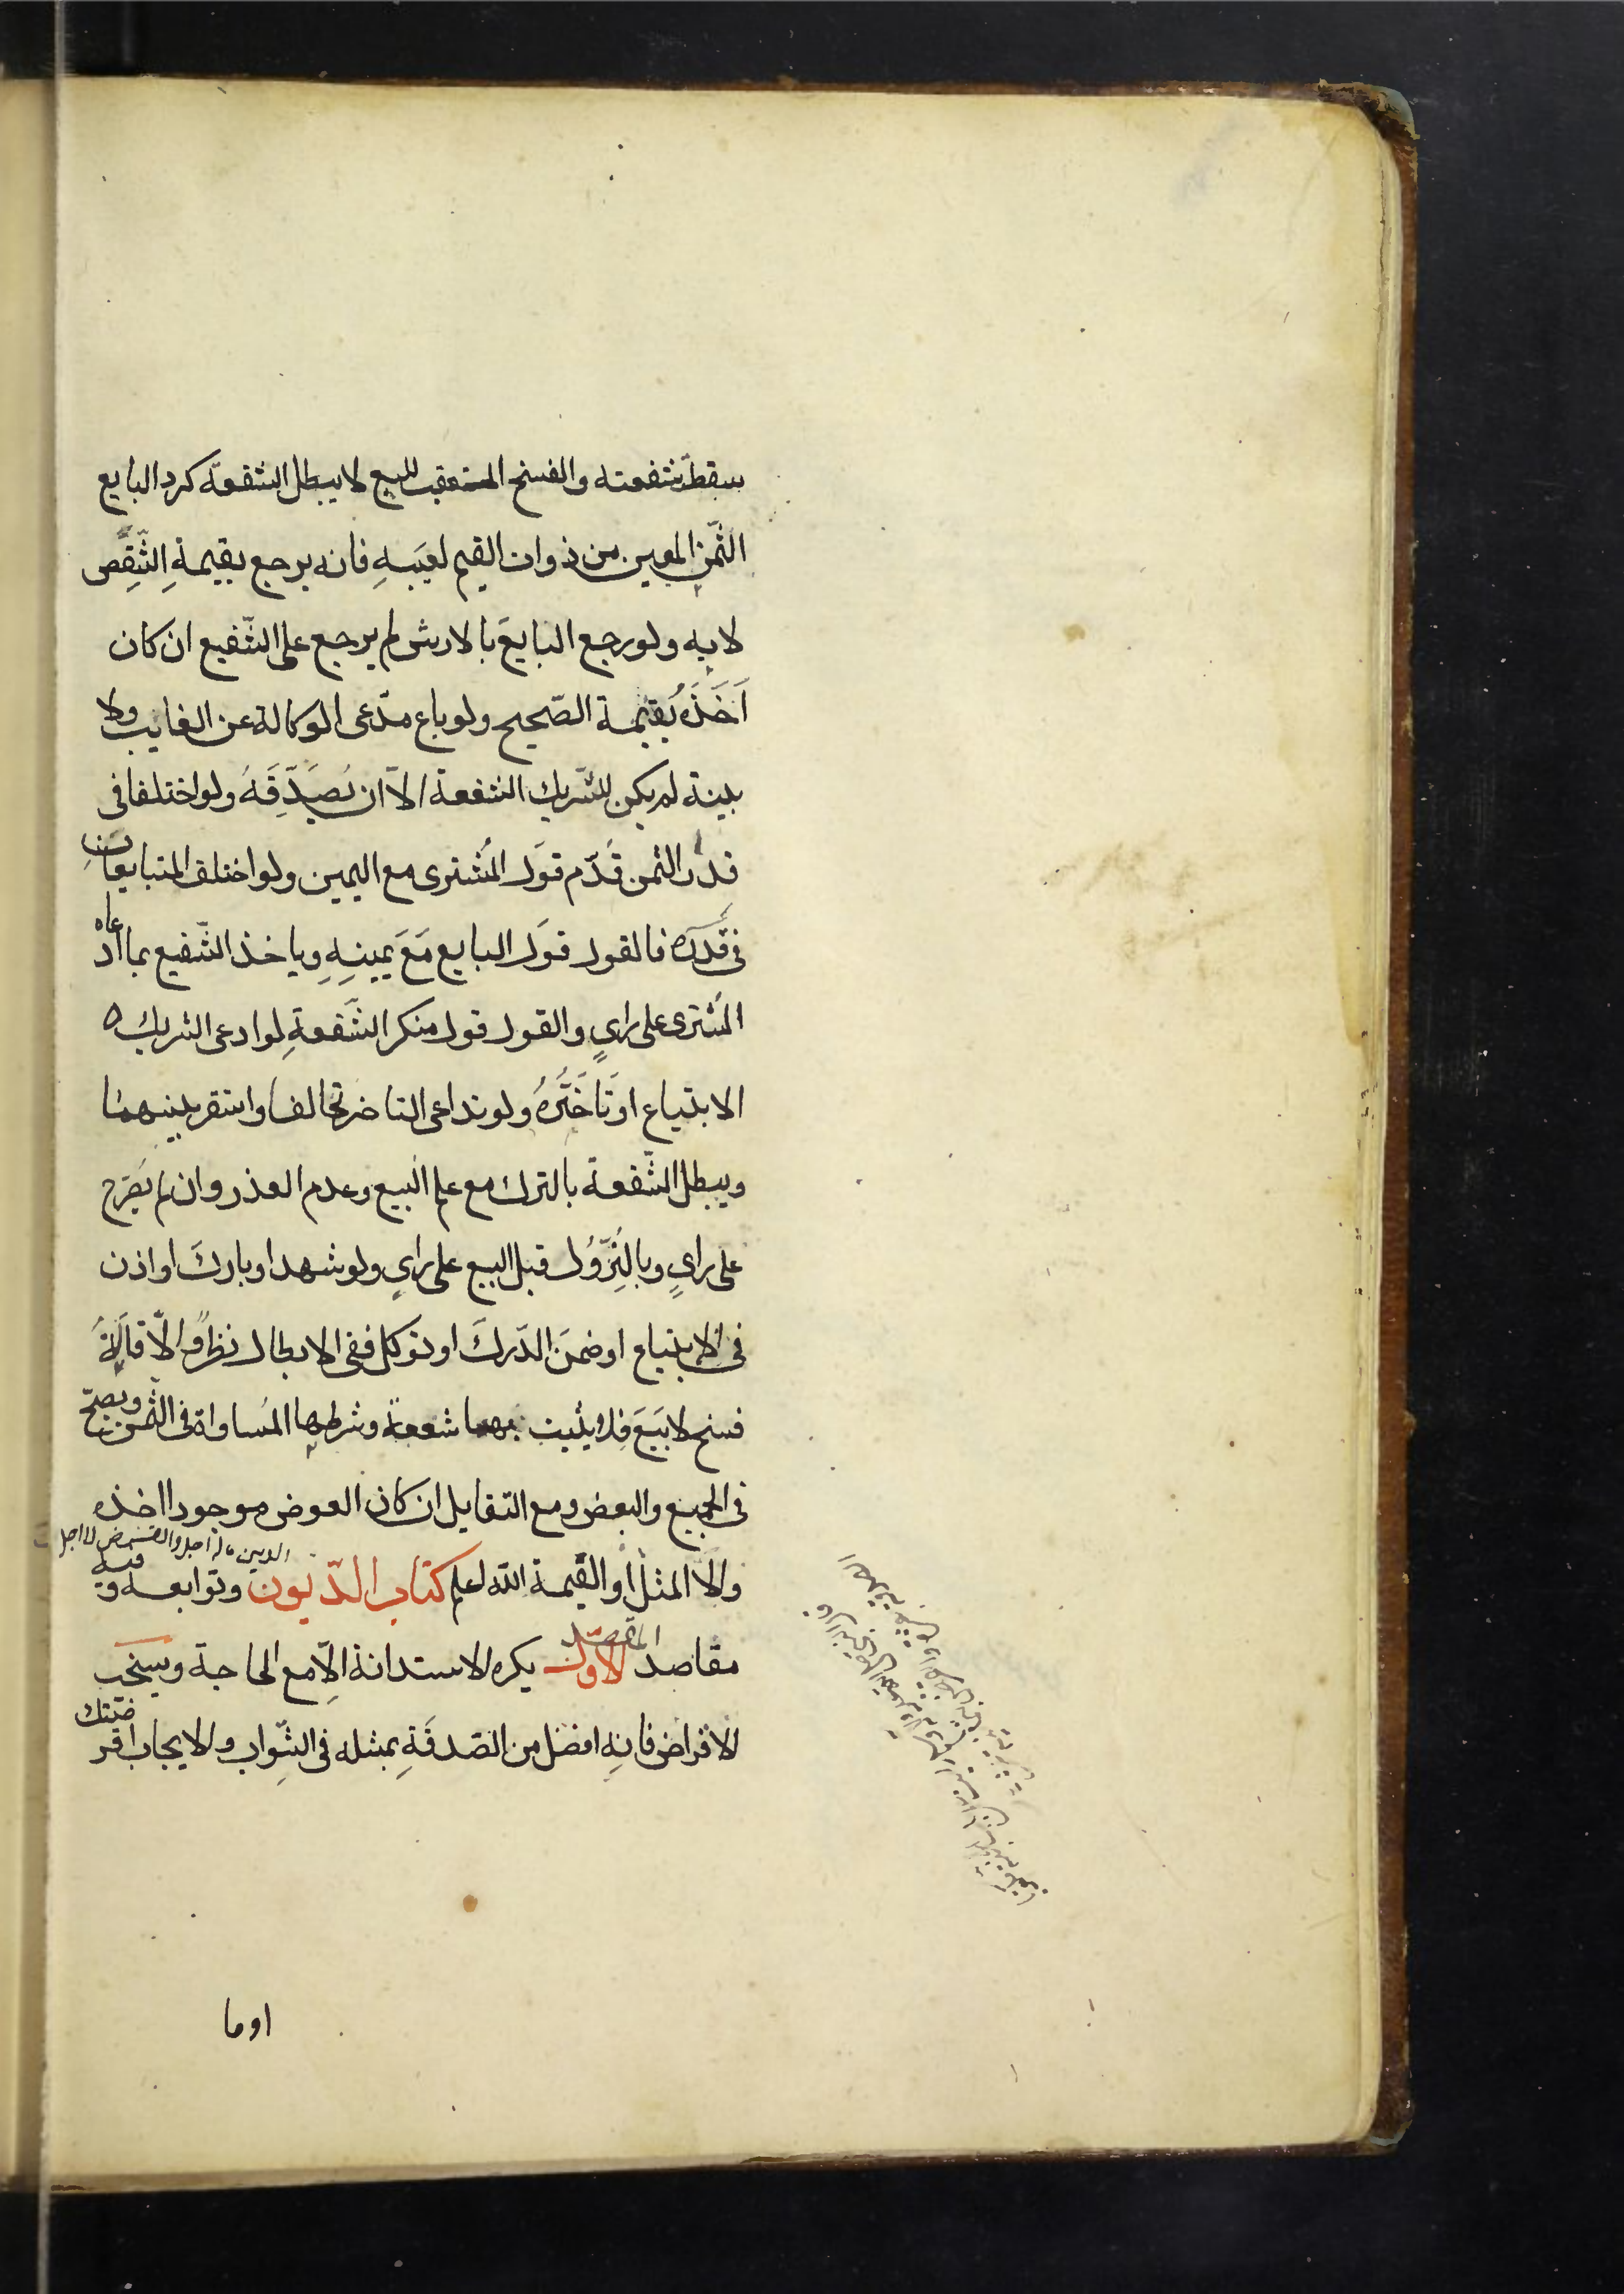 سقطت شفعته والفسخ المتعقب للبيع لا يبطل الشفعة كرد البايع
الثّمن المعين من ذوات القيم لعيبهِ فانه يرجع بقيمةِ الشِّقص
لا به ولو رجع البايعَ بالارش لم يرجع على الشّفيع ان كان
اَخَذَه بقيمة الصّحيح ولو باع مدّعى الوكالة عن الغايب ولا
بينة لم يكن للشّريك الشفعة الاّ ان يُصَدِّقَهُ ولو اختلفا فى
قدر الثمن قُدّم قوَل المُشترى مع اليمين ولو اختلف المتبايعانِ
فى قدره فالقول قوَل البايع مَعَ يمينِهِ وياخذ الشّفيع بما ادعاه
المُشترى على رايٍ والقول قول منكر الشّفعةِ لو ادعى الشريك
الابتياع او تاخّرهُ ولو تداعى التاخر تحالفا واستقر بينهما
ويبطل الشّفعة بالترك مع علم البيع وعدم العذر وان لم يصَرّح
على رايٍ وبالنّزُول قبل البيع على رايٍ ولو شهد او باركَ او اذن
فى الابتياع او ضمنَ الدّركَ او توكل ففى الابطال نظرٌ والاّقالَةُ
فسخ لا بَيَعَ فلا يثبت بهما شفعة وشرطها المُساواة فى الثمن ويصحّ
فى الجميع والبعض ومع التقايل ان كان العوض موجودا اخذه
الدين ماله اجل والقرض لا اجل
والاّ المثل او القيمة الله اعلم كتاب الدّيون وتوابعه وفيه
مقاصد المقصد الاوّل يكره الاستدانة الاّ مع الحاجة ويستحب
الاقراض فانه افضل من الصّدقَةِ بمثله فى الثّواب والايجاب اقرضتك
او ما